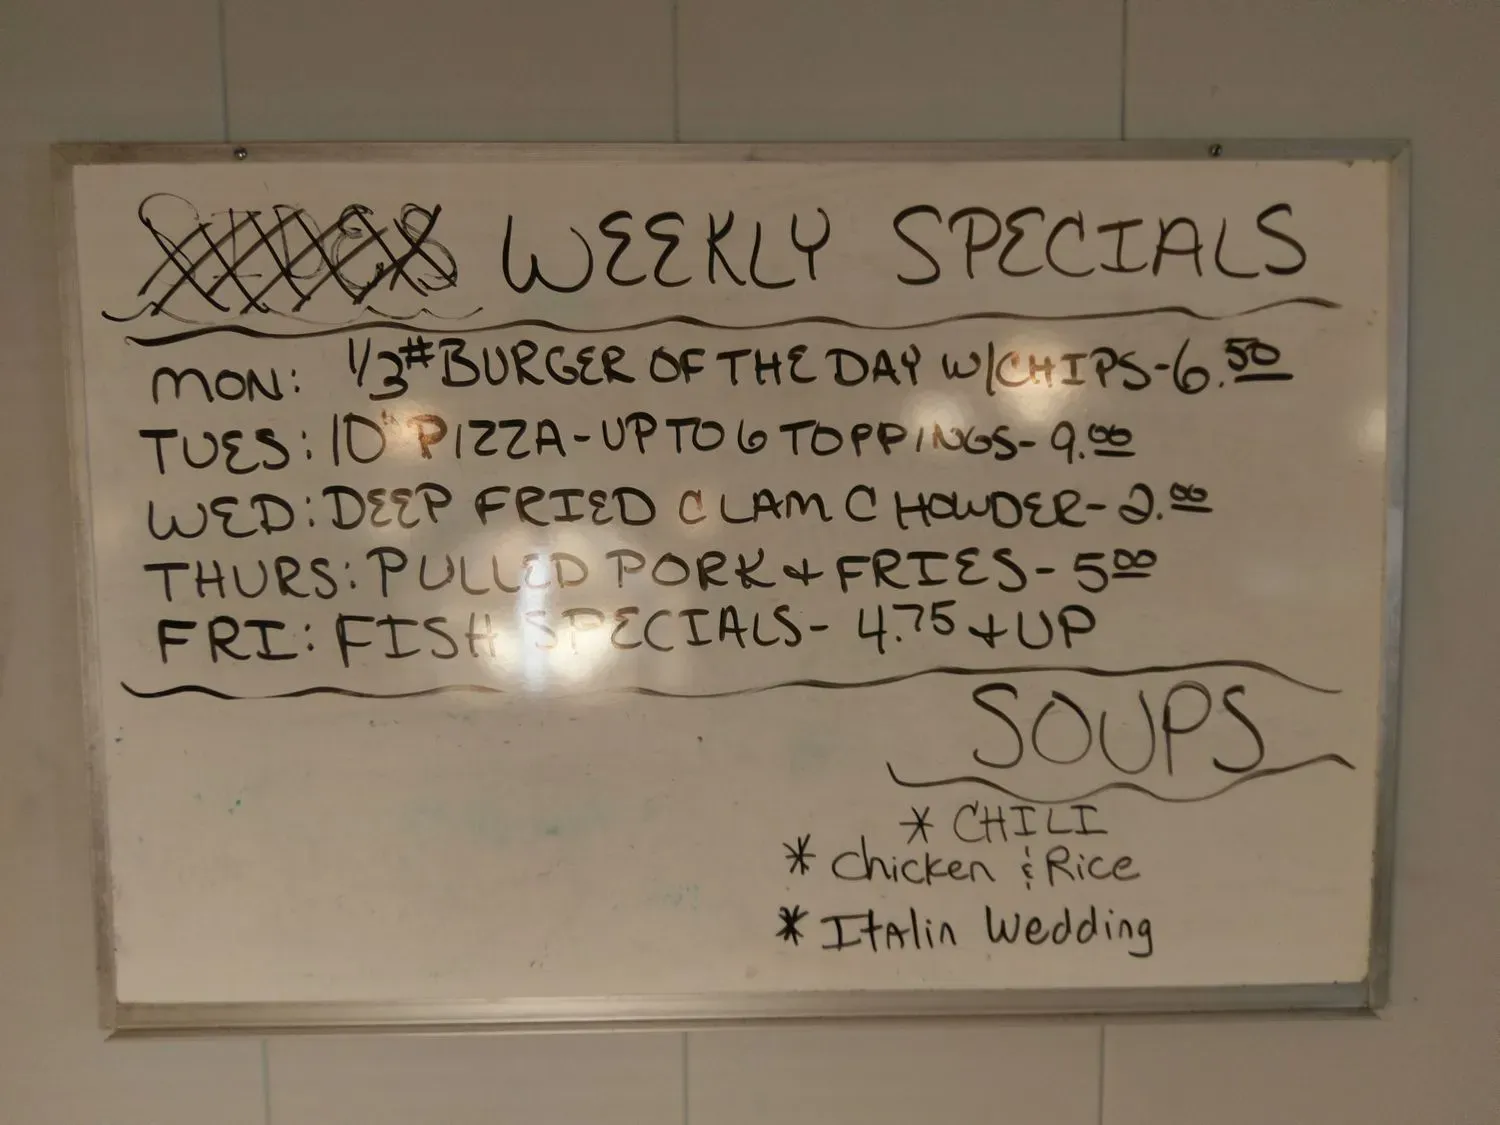 WEEKLY SPECIALS
MON: 1/3# BURGER OF THE DAY W/CHIPS-6.50
TUES: 10" PIZZA-UP TO 6 TOPPINGS-9.00
WED: DEEP FRIED CLAM CHOWDER-2.00
THURS: PULLED PORK + FRIES-5 00
FRI: FISH SPECIALS-4.75 + UP
SOUPS
* CHILI
* Chicken & Rice
* Italin Wedding